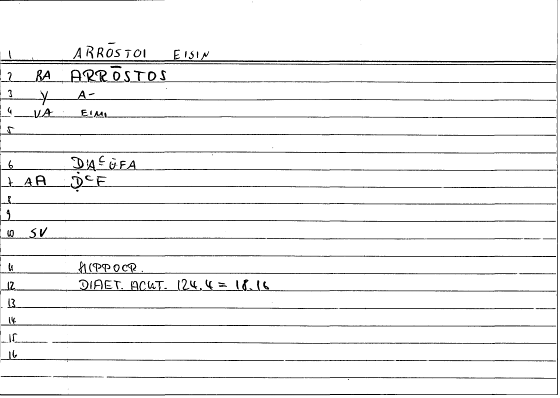 1 ARRŌSTOI EISIN
2 RA ARRŌSTOS
3 Y A-
4 VA EIMI
5
6
7 AA
8
9
10 SV
11 HIPPOCR.
12 DIAET. ACUT. 124.4 = 18.16
13
14
15
16